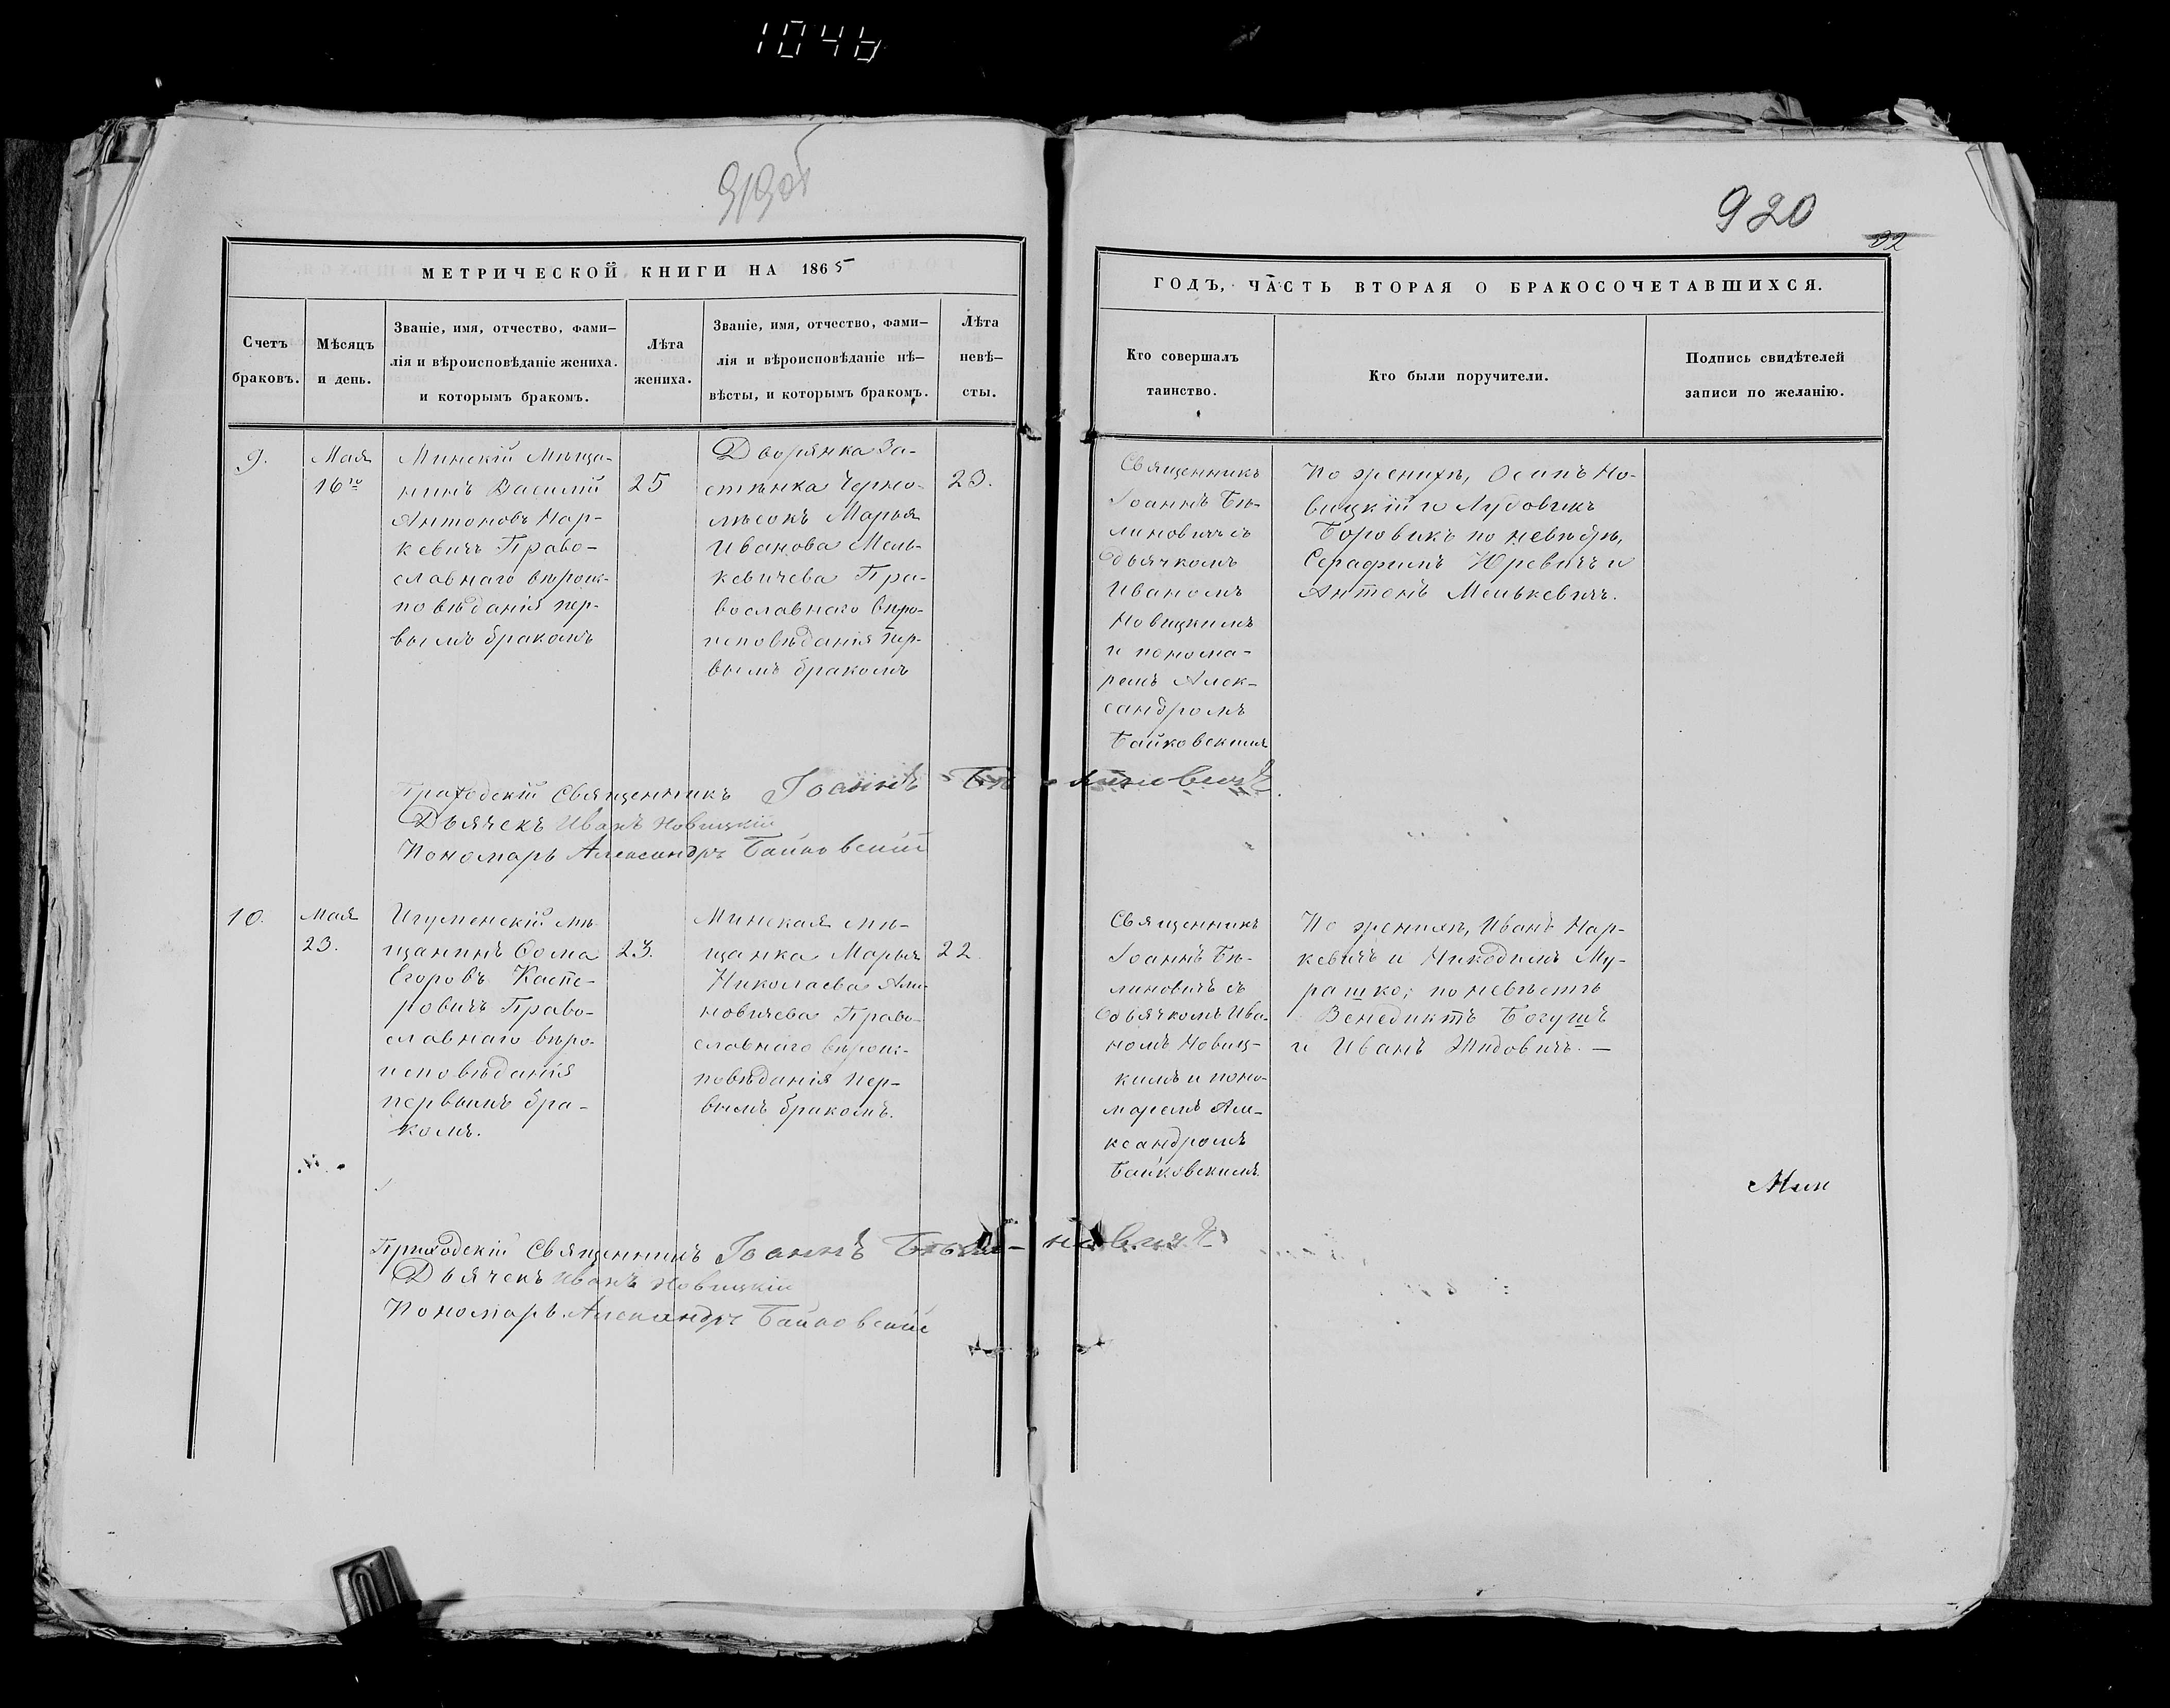 1046
919об
920
92
МЕТРИЧЕСКОЙ КНИГИ НА 1865
ГОДЪ, ЧАСТЬ ВТОРАЯ О БРАКОСОЧЕТАВШИХСЯ.
Счетъ
браковъ.
Мѣсяцъ
и день.
Званіе, имя, отчество, фами–
лія и вѣроисповѣданіе жениха.
и которымъ бракомъ.
Лѣта
жениха.
Званіе, имя, отчество, фами–
лія и вѣроисповѣданіе нѣ–
вѣсты, и которымъ бракомъ.
Лѣта
невѣ–
сты.
Кто совершалъ
таинство.
Кто были поручители.
Подпись свидѣтелей
записи по желанію.
9.
Мая
16го
Минскій Мѣща-
нинъ Василій
Антоновъ Нар-
кевичъ Право-
славнаго вѣроис-
повѣданія пер-
вымъ бракомъ
25
Дворянка За-
стѣнка Черно-
лѣсокъ Марья
Иванова Мель-
кевичева Пра-
вославнаго вѣро-
исповѣданія пер-
вымъ бракомъ
23.
Священникъ
Іоаннъ Бѣ-
линовичъ съ
дьячкомъ
Иваномъ
Новицкимъ
и понома-
ремъ Алек-
сандромъ
Байковскимъ
По женихѣ, Осипъ Но-
вицкій и Лудовикъ
Боровикъ по невѣстѣ,
Серафимъ Юревичъ и
Антонъ Мелькевичъ.
Приходскій Священникъ Іоаннъ Бѣ-линовичъ.
Дьячекъ Иванъ Новицкій
Пономарь Александръ Байковскій
10.
Мая
23.
Игуменскій мѣ-
щанинъ Ѳома
Егоровъ Каспе-
ровичъ Право-
славнаго вѣро-
исповѣданія
первымъ бра-
комъ.
23.
Минская мѣ-
щанка Марья
Николаева
новичева Право-
славнаго вѣроис-
повѣданія пер-
вымъ бракомъ.
22.
Священникъ
Іоаннъ Бѣ-
линовичъ съ
дьячкомъ Ива-
номъ Новиц-
кимъ и поно-
маремъ Але-
ксандромъ
Байковскимъ.
По женихѣ, Иванъ Нар-
кевичъ и Никодимъ Му-
рашко; по невѣстѣ
Венедиктъ Богушъ
и Иванъ Жидовичъ. —
Мин
Приходскій Священникъ Іоаннъ Бѣли-новичъ
Дьячекъ Иванъ Новицкій
Пономарь Александръ Байковскій